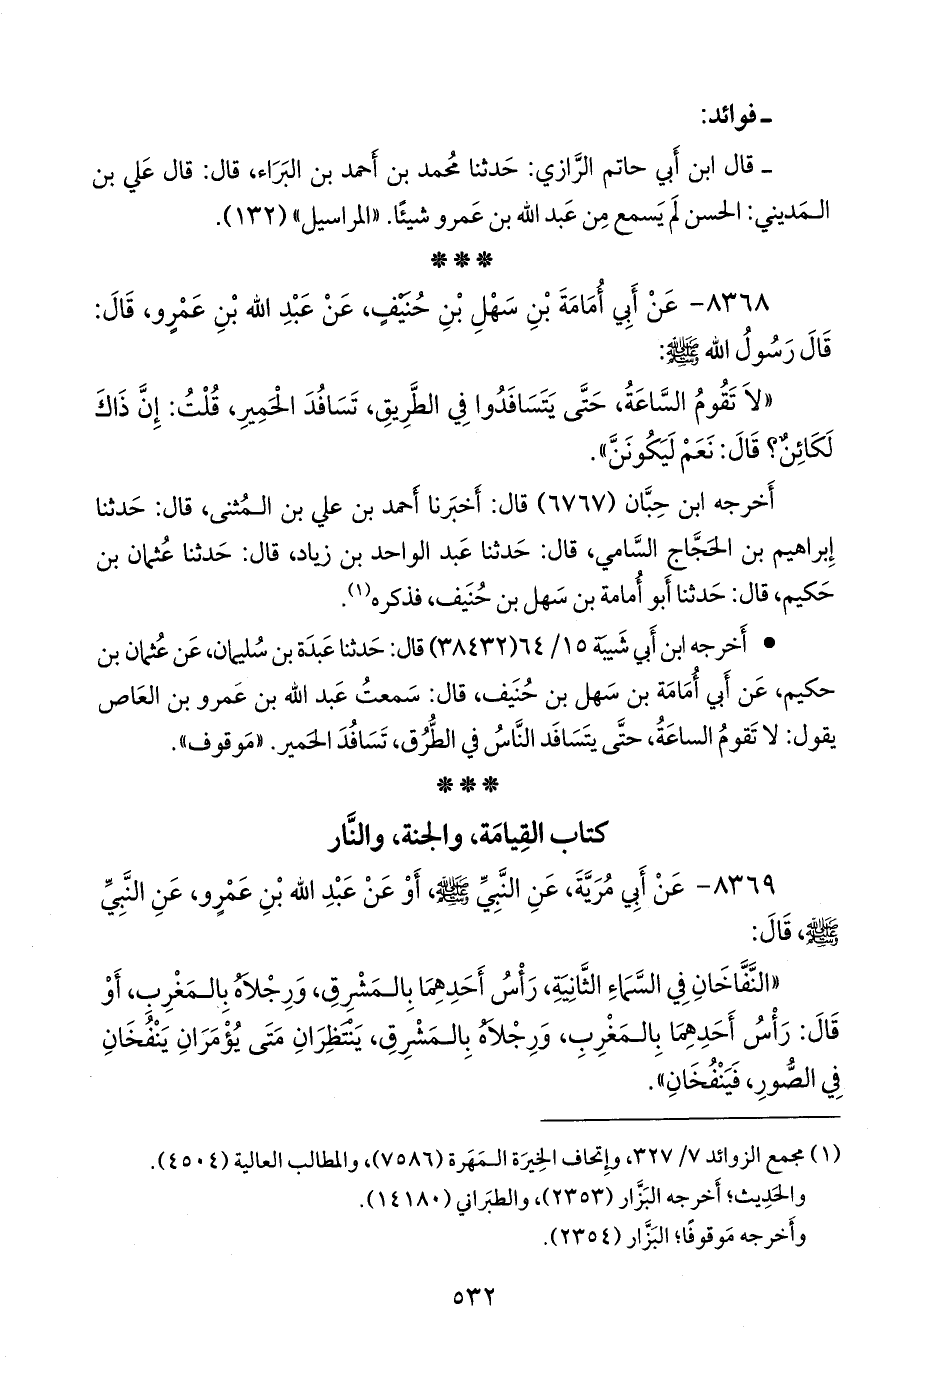 ـ فوائد:
ـ قال ابن أَبي حاتم الرَّازي: حَدثنا مُحمد بن أَحمد بن البَرَاء، قال: قال عَلي بن
الـمَديني: الحسن لَم يَسمع مِن عَبد الله بن عَمرو شيئًا. «المراسيل» (١٣٢).
***
٨٣٦٨- عَنْ أَبِي أُمَامَةَ بْنِ سَهْلِ بْنِ حُنَيْفٍ، عَنْ عَبْدِ الله بْنِ عَمْرٍو، قَالَ:
قَالَ رَسُولُ الله ﷺ:
«لاَ تَقُومُ السَّاعَةُ، حَتَّى يَتَسَافَدُوا فِي الطَّرِيقِ، تَسَافُدَ الْحَمِيرِ، قُلْتُ: إِنَّ ذَاكَ
لَكَائِنٌ؟ قَالَ: نَعَمْ لَيَكُونَنَّ».
أَخرجه ابن حِبَّان (٦٧٦٧) قال: أَخبَرنا أَحمد بن علي بن الـمُثنى، قال: حَدثنا
إِبراهيم بن الحَجَّاج السَّامي، قال: حَدثنا عَبد الواحد بن زياد، قال: حَدثنا عُثمان بن
حَكيم، قال: حَدثنا أَبو أُمامة بن سَهل بن حُنَيف، فذكره(١).
• أَخرجه ابن أَبي شَيبَة ١٥/ ٦٤(٣٨٤٣٢) قال: حَدثنا عَبدَة بن سُليمان، عَن عُثمان بن
حكيم، عَن أَبي أُمَامَة بن سَهل بن حُنَيف، قال: سَمعتُ عَبد الله بن عَمرو بن العَاص
يقول: لا تَقومُ الساعَةُ، حتَّى يتَسَافَد النَّاسُ في الطُّرُق، تَسَافُدَ الحَمير. «مَوقوف».
***
كتاب القِيامَة، والجنة، والنَّار
٨٣٦٩- عَنْ أَبِي مُرَيَّةَ، عَنِ النَّبِيِّ ﷺ، أَوْ عَنْ عَبْدِ الله بْنِ عَمْرٍو، عَنِ النَّبِيِّ
ﷺ، قَالَ:
«النَّفَّاخَانِ فِي السَّمَاءِ الثَّانِيَةِ، رَأْسُ أَحَدِهِمَا بِالـمَشْرِقِ، وَرِجْلاَهُ بِالـمَغْرِبِ، أَوْ
قَالَ: رَأْسُ أَحَدِهِمَا بِالـمَغْرِبِ، وَرِجْلاَهُ بِالـمَشْرِقِ، يَنْتَظِرَانِ مَتَى يُؤْمَرَانِ يَنْفُخَانِ
فِي الصُّورِ، فَيَنْفُخَانِ».
(١) مجمع الزوائد ٧/ ٣٢٧، وإِتحاف الخِيرَة الـمَهَرة (٧٥٨٦)، والمطالب العالية (٤٥٠٤).
والحَدِيث؛ أَخرجه البَزَّار (٢٣٥٣)، والطبَراني (١٤١٨٠).
وأَخرجه مَوقوفًا؛ البَزَّار (٢٣٥٤).
٥٣٢